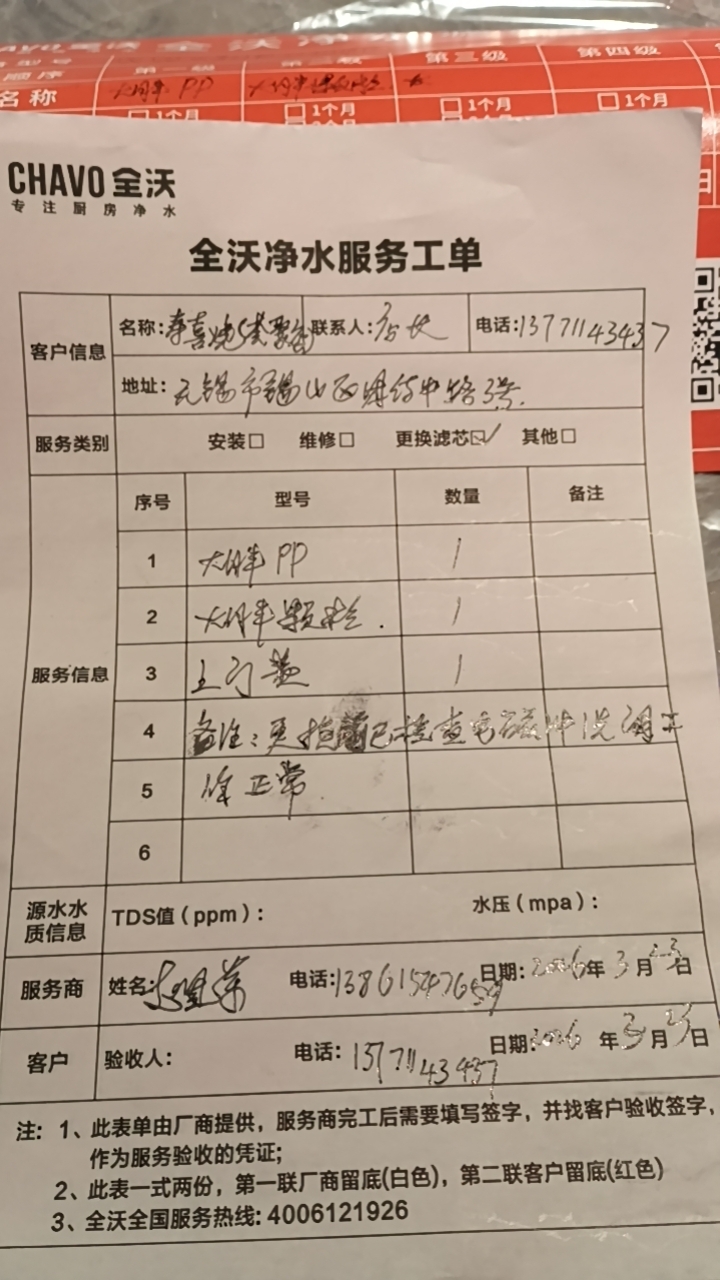 全沃净
第一级
第二级
第三级
第四级
顺序
名称 大胖 PP 大胖
1个月 1个月 1个月 1个月
CHAVO 全沃
专注厨房净水
全沃净水服务工单
客户信息 名称:寿喜烧 联系人:店长 电话:13771143437
地址:无锡市锡山区
服务类别 安装☐ 维修☐ 更换滤芯☑ 其他☐
服务信息 序号 型号 数量 备注
1 大胖 PP 1
2 大胖 颗粒. 1
3 1
4 备注:更换前已检查电磁冲洗阀
5 正常
6
源水水质信息 TDS值(ppm): 水压(mpa):
服务商 姓名: 电话:13861547659 日期:2026年3月23日
客户 验收人: 电话:13771143437 日期:2026年3月日
注: 1、此表单由厂商提供,服务商完工后需要填写签字,并找客户验收签字,
作为服务验收的凭证;
2、此表一式两份,第一联厂商留底(白色),第二联客户留底(红色)
3、全沃全国服务热线:4006121926